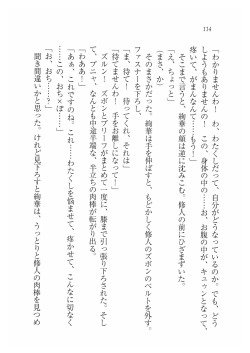 134
「わかりませんわ！　わ、わたくしだって、自分がどうなっているのか。でも、どう
しようもありませんの！　この、身体の中の……お、お腹の中が、キュウンとなって、
疼いて、がまんなんて……もう！」
そこまで言うと、絢華の頭は逆に沈みこむ。修人の前にひざまずいた。
「え、ちょっと」
（まさ、か）
そのまさかだった。絢華は手を伸ばすと、もどかしく修人のズボンのベルトを外す。
ファスナーを下ろし、
「ま、待て！　待ってくれ、それは」
「待てません！　手をお離しになって！」
ズルン！　ズボンとブリーフがまとめて一度に、膝まで引っ張り下ろされた。そし
て、ブニャ、なんとも中途半端な、半立ちの肉棒が転がり出る。
「わああ！」
「あぁ、これですのね。これ……わたくしを悩ませて、疼かせて、こんなに切なく
……この、おち×ぽ……」
「お、おち……？」
聞き間違いかと思った。けれど見下ろすと絢華は、うっとりと修人の肉棒を見つめ